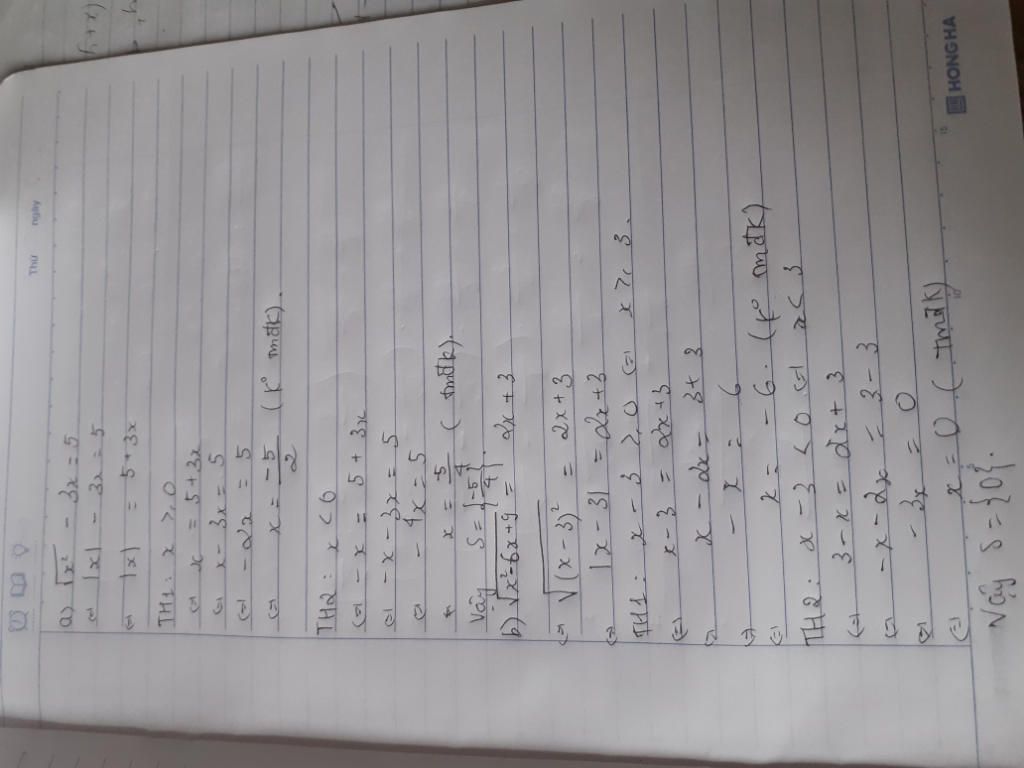 Thứ
ngày
a) √x² - 3x = 5
(=) |x| - 3x = 5
(=) |x| = 5 + 3x
TH1: x ≥ 0
(=) x = 5 + 3x
(=) x - 3x = 5
(=) - 2x = 5
(=) x = -5/2 (k° tmđk).
TH2: x < 0
(=) - x = 5 + 3x
(=) - x - 3x = 5
(=) - 4x = 5
x = -5/4 (tmđk).
Vậy S = {-5/4}.
b) √x² - 6x + 9 = 2x + 3
(=) √(x - 3)² = 2x + 3
(=) |x - 3| = 2x + 3
TH1: x - 3 ≥ 0 (=) x ≥ 3.
(=) x - 3 = 2x + 3
(=) x - 2x = 3 + 3
(=) - x = 6
(=) x = - 6. (k° tmđk)
TH2: x - 3 < 0 (=) x < 3
(=) 3 - x = 2x + 3
(=) - x - 2x = 3 - 3
(=) - 3x = 0
(=) x = 0 (tmđk)
Vậy S = {0}.
HONG HA